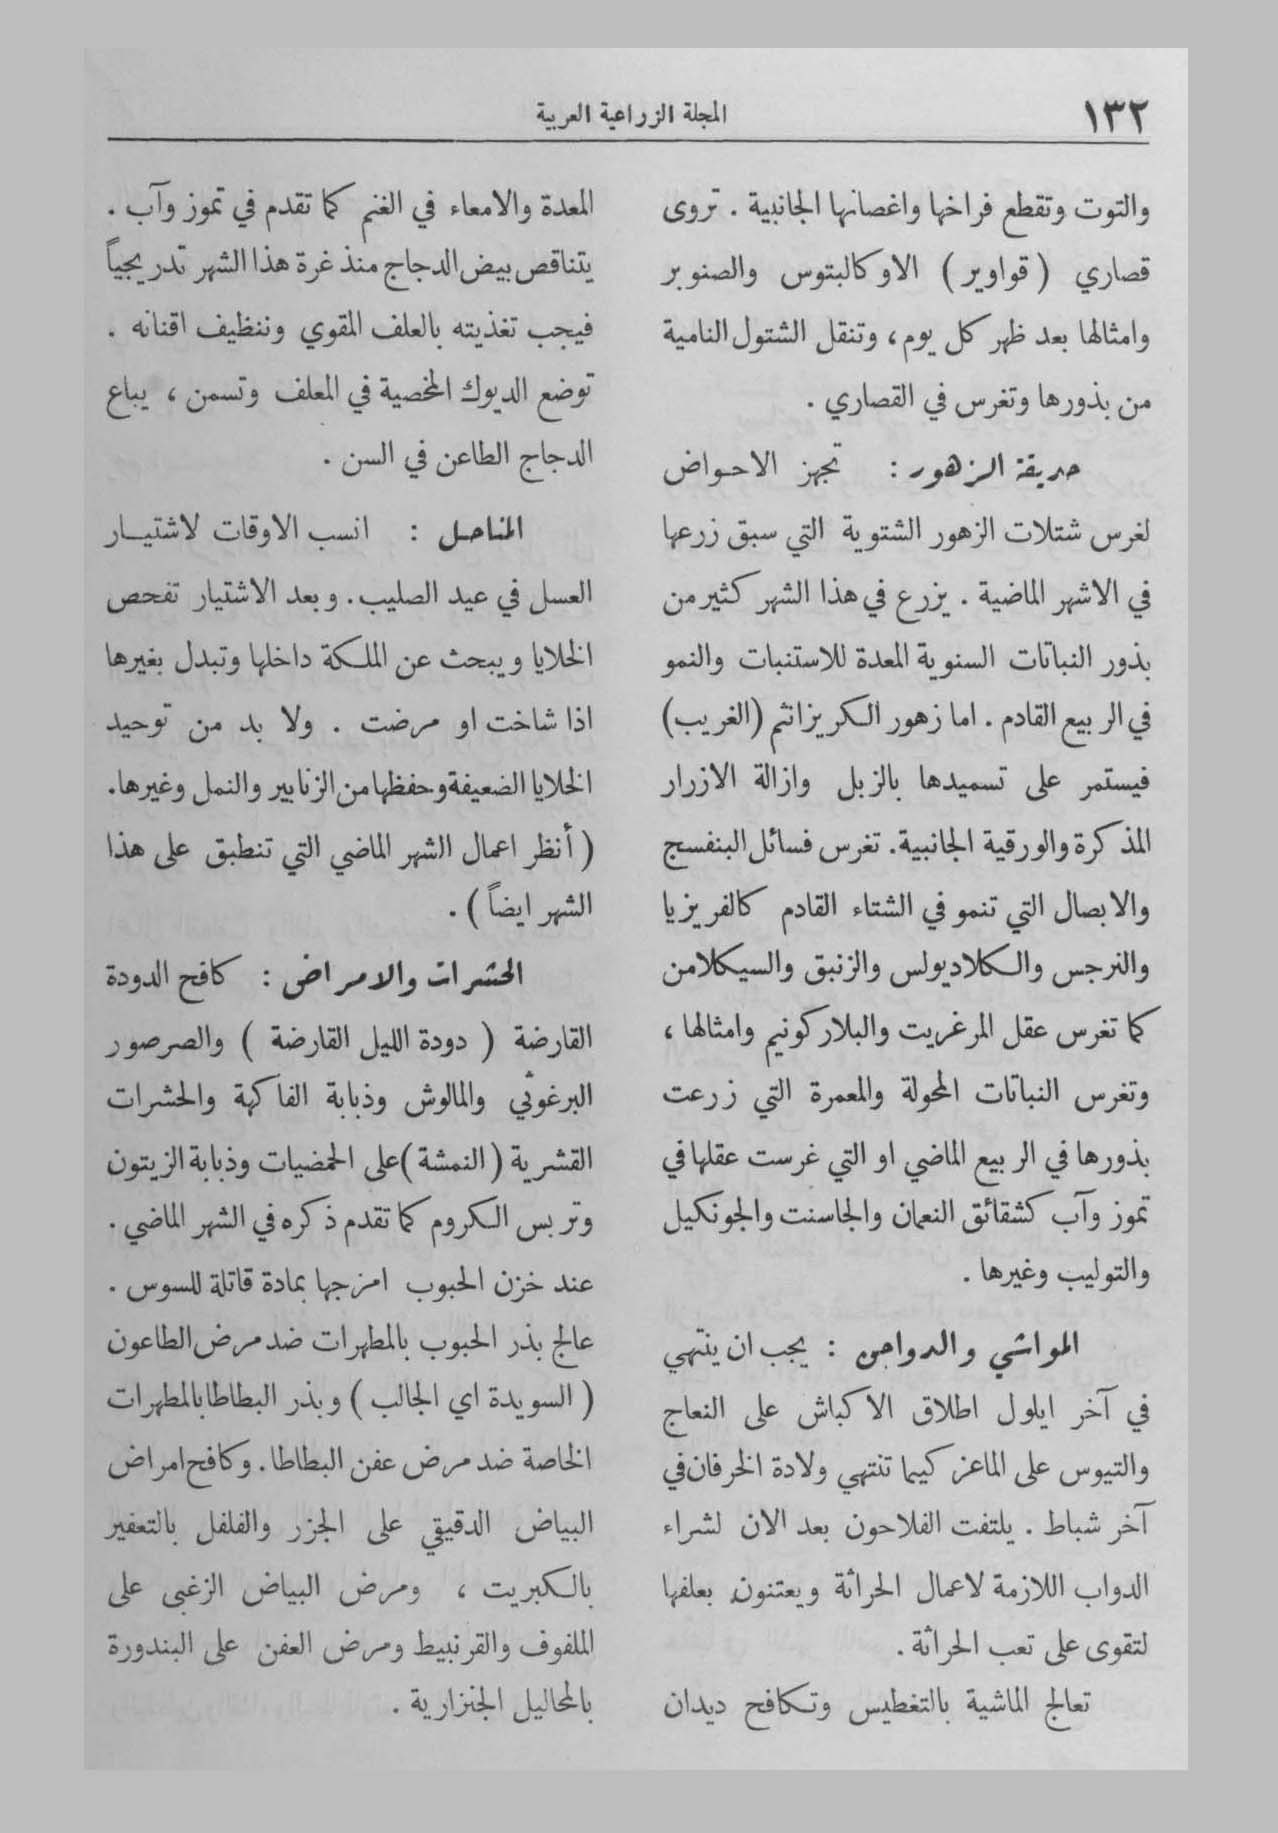 ١٣٢
المجلة الزراعية العربية
والتوت وتقطع فراخها واغصانها الجانبية . تروى
قصاري ( قواوير ) الاوكالبتوس والصنوبر
وامثالها بعد ظهر كل يوم، وتنقل الشتول النامية
من بذورها وتغرس في القصاري .
حديقة الزهور : تجهز الاحواض
لغرس شتلات الزهور الشتوية التي سبق زرعها
في الاشهر الماضية . يزرع في هذا الشهر كثير من
بذور النباتات السنوية المعدة للاستنبات والنمو
في الربيع القادم . اما زهور الكريزانثم (الغريب)
فيستمر على تسميدها بالزبل وازالة الازرار
المذكرة والورقية الجانبية. تغرس فسائل البنفسج
والابصال التي تنمو في الشتاء القادم كالفريزيا
والنرجس والكلاديولس والزنبق والسيكلامن
كما تغرس عقل المرغريت والبلاركونيم وامثالها ،
وتغرس النباتات المحولة والمعمرة التي زرعت
بذورها في الربيع الماضي او التي غرست عقلها في
تموز وآب كشقائق النعمان والجاسنت والجونكيل
والتوليب وغيرها .
المواشي والدواجن : يجب ان ينتهي
في آخر ايلول اطلاق الاكباش على النعاج
والتيوس على الماعز كيما تنتهي ولادة الخرفان في
آخر شباط . يلتفت الفلاحون بعد الان لشراء
الدواب اللازمة لاعمال الحراثة ويعتنون بعلفها
لتقوى على تعب الحراثة .
تعالج الماشية بالتغطيس وتكافح ديدان
المعدة والامعاء في الغنم كما تقدم في تموز وآب .
يتناقص بيض الدجاج منذ غرة هذا الشهر تدريجياً
فيجب تغذيته بالعلف المقوي وتنظيف اقنانه .
توضع الديوك المخصية في المعلف وتسمن ، يباع
الدجاج الطاعن في السن .
المناحل : انسب الاوقات لاشتيار
العسل في عيد الصليب. وبعد الاشتيار تفحص
الخلايا ويبحث عن الملكة داخلها وتبدل بغيرها
اذا شاخت او مرضت . ولا بد من توحيد
الخلايا الضعيفة وحفظها من الزنابير والنمل وغيرها.
( أنظر اعمال الشهر الماضي التي تنطبق على هذا
الشهر ايضاً ) .
الحشرات والامراض : كافح الدودة
القارضة ( دودة الليل القارضة ) والصرصور
البرغوثي والمالوش وذبابة الفاكهة والحشرات
القشرية (النمشة)على الحمضيات وذبابة الزيتون
وتربس الكروم كما تقدم ذكره في الشهر الماضي .
عند خزن الحبوب امزجها بمادة قاتلة للسوس .
عالج بذر الحبوب بالمطهرات ضد مرض الطاعون
( السويدة اي الجالب ) وبذر البطاطا بالمطهرات
الخاصة ضد مرض عفن البطاطا. وكافح امراض
البياض الدقيقي على الجزر والفلفل بالتعفير
بالكبريت ، ومرض البياض الزغبي على
الملفوف والقرنبيط ومرض العفن على البندورة
بالمحاليل الجنزارية .